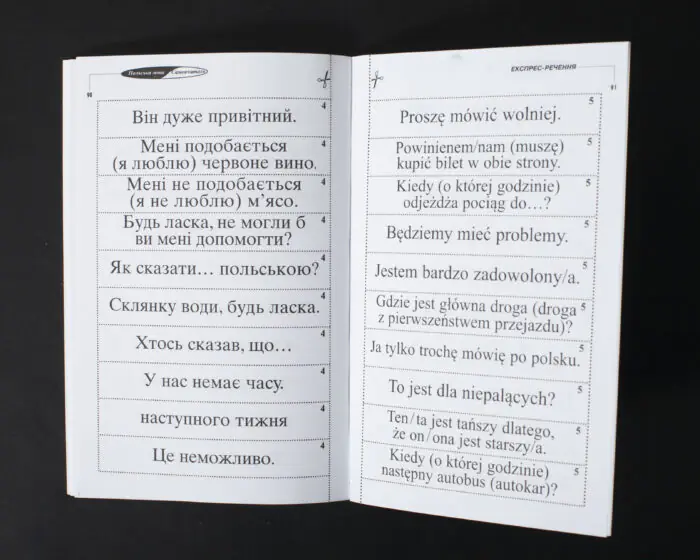 Польська мова Самовчитель
90
Він дуже привітний.
4
Мені подобається
(я люблю) червоне вино.
4
Мені не подобається
(я не люблю) м’ясо.
4
Будь ласка, не могли б
ви мені допомогти?
4
Як сказати… польською?
4
Склянку води, будь ласка.
4
Хтось сказав, що…
4
У нас немає часу.
4
наступного тижня
4
Це неможливо.
4
ЕКСПРЕС-РЕЧЕННЯ
91
Proszę mówić wolniej.
5
Powinienem/nam (muszę)
kupić bilet w obie strony.
5
Kiedy (o której godzinie)
odjeżdża pociąg do…?
5
Będziemy mieć problemy.
5
Jestem bardzo zadowolony/a.
5
Gdzie jest główna droga (droga
z pierwszeństwem przejazdu)?
5
Ja tylko trochę mówię po polsku.
5
To jest dla niepalących?
5
Ten/ta jest tańszy dlatego,
że on/ona jest starszy/a.
5
Kiedy (o której godzinie)
następny autobus (autokar)?
5